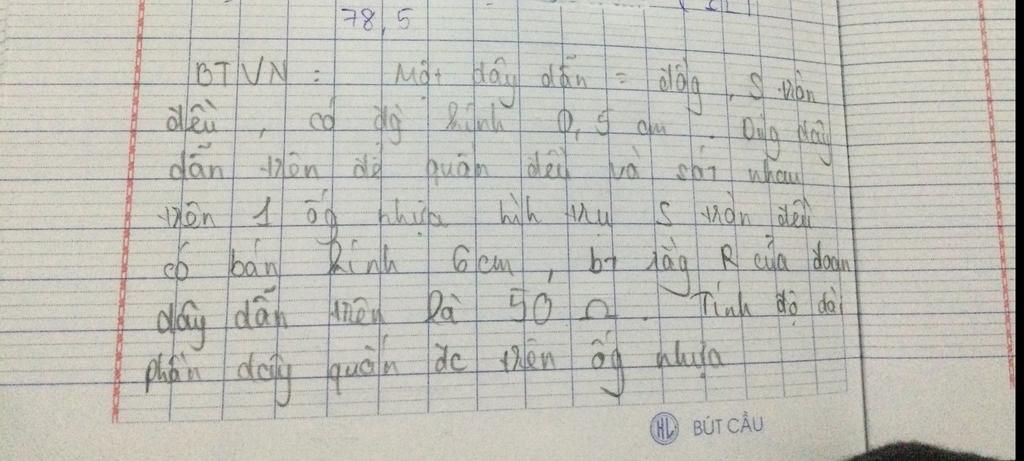 78,5
BTVN : Một dây dẫn = đồg, S tròn
đều, có đg kính 0,5 cm. Dùg dây
dẫn trên để quấn đều và sát nhau
trên 1 ốg nhựa hìh trụ S tròn đều
có bán kính 6cm, bt rằg R của đoạn
dây dẫn trên là 50 Ω. Tính độ dài
phần dây quấn đc trên ốg nhựa
HL BÚT CẦU